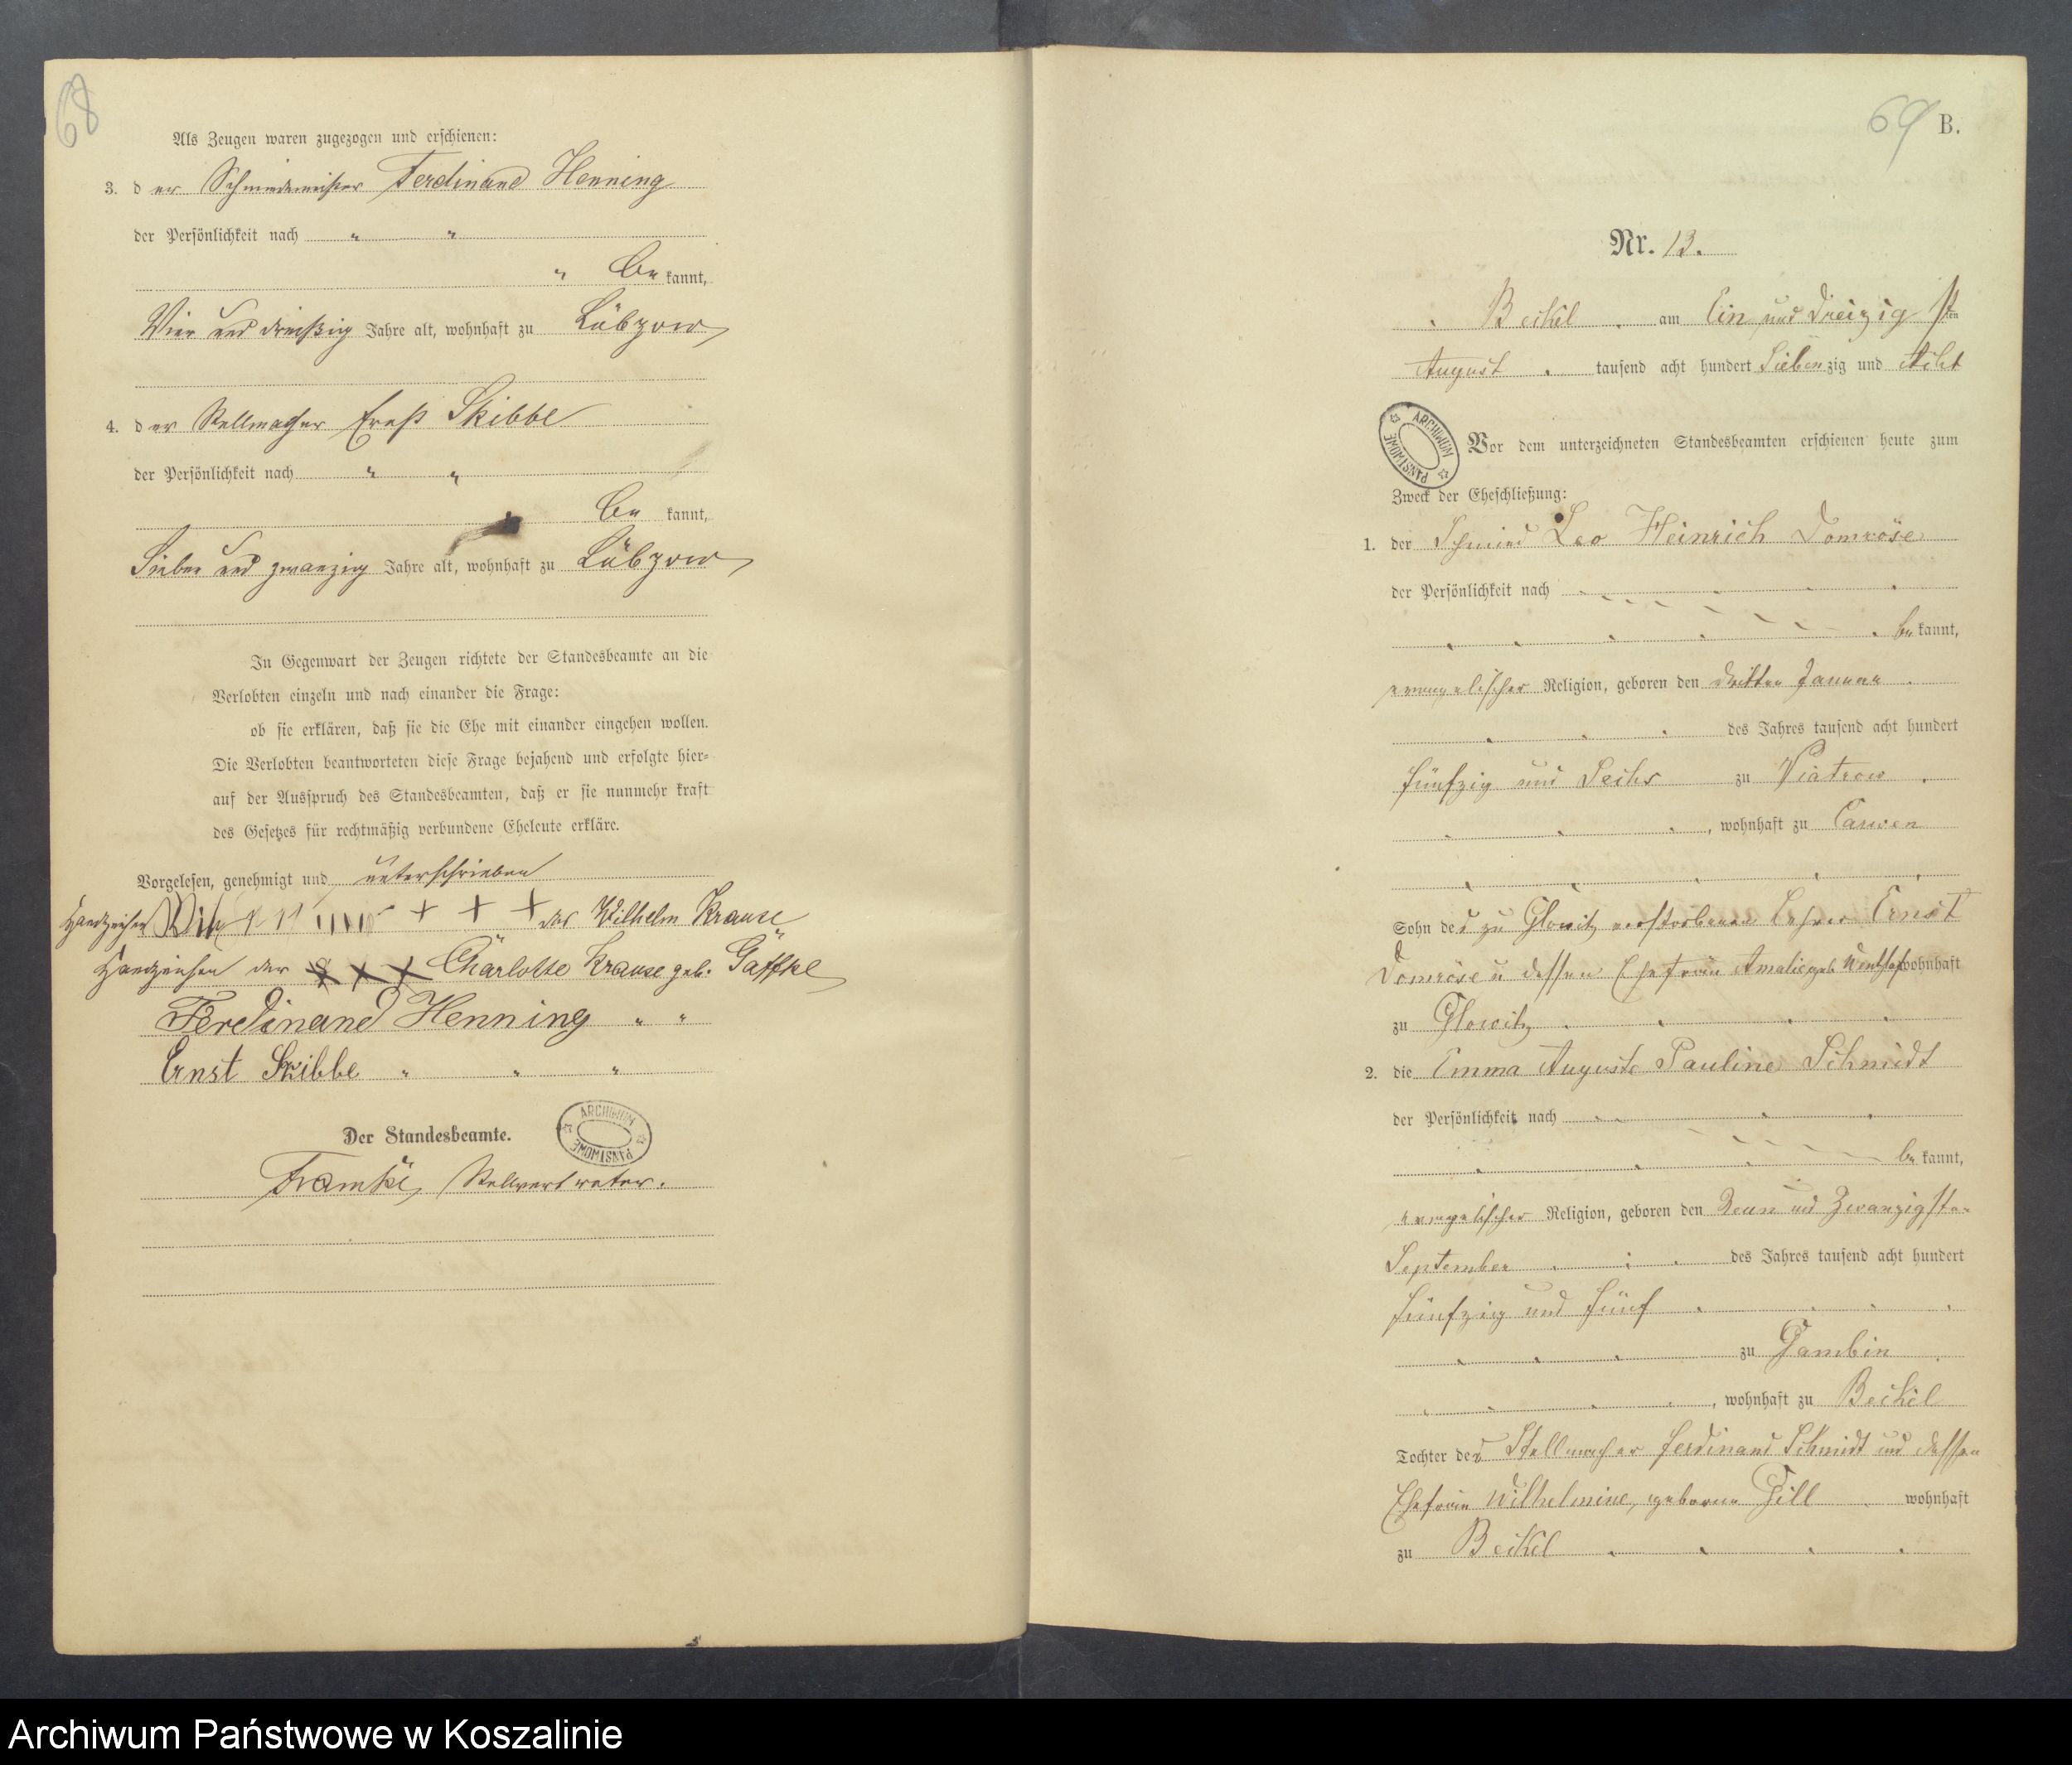 68
Als Zeugen waren zugezogen und erschienen:
3. der Schmiedemeister Ferdinand Henning
der Persönlichkeit nach " "
" bekannt,
Vier und dreißig Jahre alt, wohnhaft zu Lübzow
4. der Stellmacher Ernst Skibbe
der Persönlichkeit nach " "
bekannt,
Sieben und zwanzig Jahre alt, wohnhaft zu Lübzow
In Gegenwart der Zeugen richtete der Standesbeamte an die
Verlobten einzeln und nach einander die Frage:
ob sie erklären, daß sie die Ehe mit einander eingehen wollen.
Die Verlobten beantworteten diese Frage bejahend und erfolgte hier-
auf der Ausspruch des Standesbeamten, daß er sie nunmehr kraft
des Gesetzes für rechtmäßig verbundene Eheleute erkläre.
Vorgelesen, genehmigt und unterschrieben
Handzeichen + + + des Wilhelm Krause
Handzeichen der x x x Charlotte Krause geb. Gaffke
Ferdinand Henning " "
Ernst Skibbe " " "
Der Standesbeamte.
ARCHIWUM PAŃSTWOWE
Framke, Stellvertreter.
69 B.
Nr. 13.
Beckel am Ein und dreizigsten
August tausend acht hundert Siebenzig und Acht
ARCHIWUM PAŃSTWOWE
Vor dem unterzeichneten Standesbeamten erschienen heute zum
Zweck der Eheschließung:
1. der Schmied Leo Heinrich Domröse
der Persönlichkeit nach
bekannt,
evangelischer Religion, geboren den dritten Januar
des Jahres tausend acht hundert
fünfzig und Sechs zu Viatrow
, wohnhaft zu Carwen
Sohn des zu Glowitz verstorbenen Lehrer Ernst
Domröse u dessen Ehefrau Amalie geb. wohnhaft
zu Glowitz
2. die Emma Auguste Pauline Schmidt
der Persönlichkeit nach
bekannt,
evangelischer Religion, geboren den Neun und Zwanzigsten
September des Jahres tausend acht hundert
fünfzig und fünf
zu Gambin
, wohnhaft zu Beckel
Tochter des Stellmacher Ferdinand Schmidt und dessen
Ehefrau Wilhelmine, geborene Gill wohnhaft
zu Beckel
Archiwum Państwowe w Koszalinie